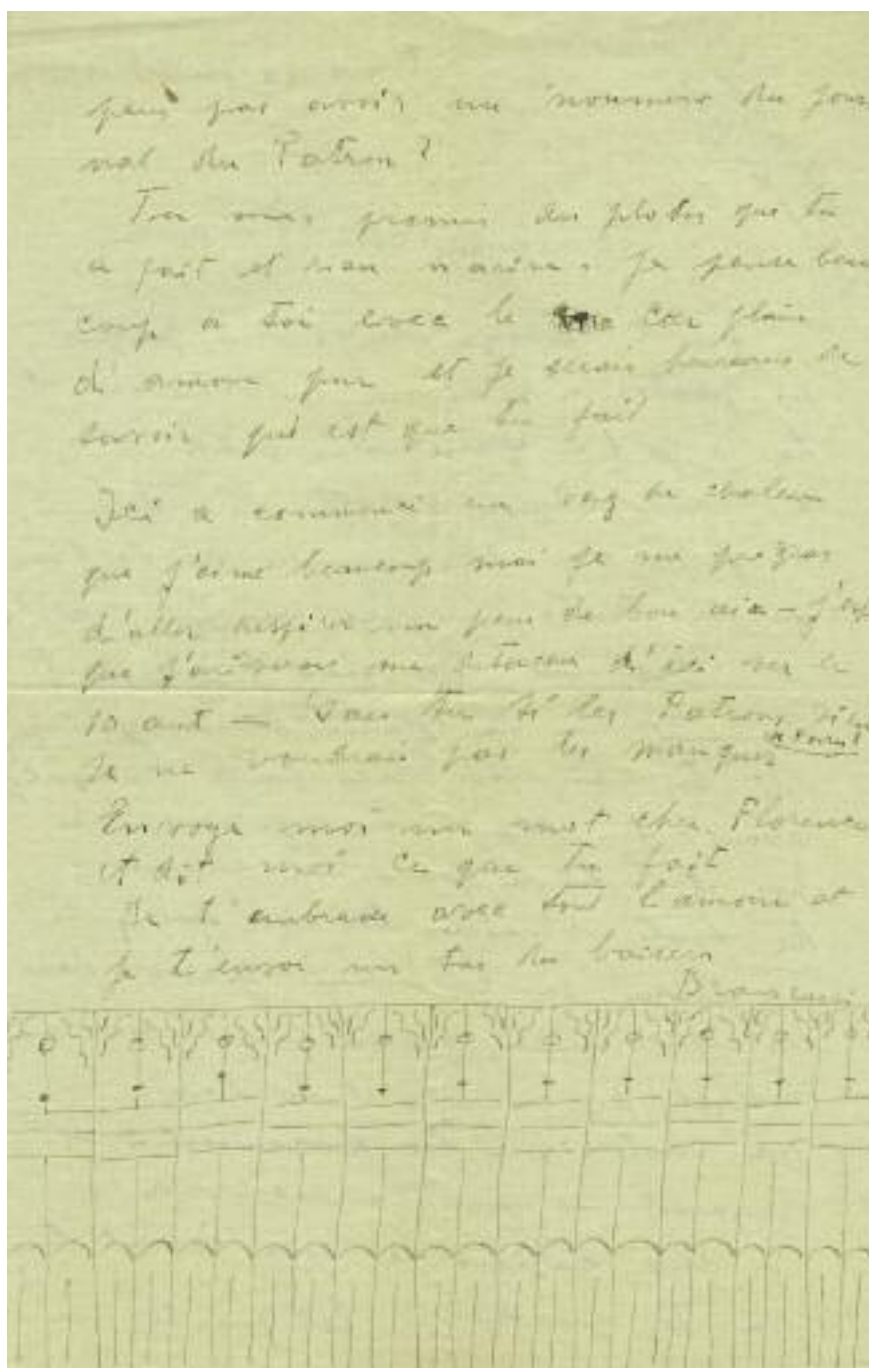 peus pas avoir un nommero du jour
nal du Patron?
Tu mas promis des photos que tu
a fait et rien n'arive. Je pense beau
coup a toi avec le cœr plain
d'amour pur et je serais heureus de
savoir qui est que tu fait
Ici a commencé un vag de chaleur
que j'aime beaucoup mai je me
d'aller respirer un peu de bon air – j'esp
que j'ariverai me d'ici ver le
10 out — Sais tu si les Patrons
Je ne voudrais pas les manquer
Envoye moi un mot cher Florence
et dit moi ce que tu fait
Je t'embrasse avec tout l'amour et
je t'envoi un tas du baisers
Brancusi